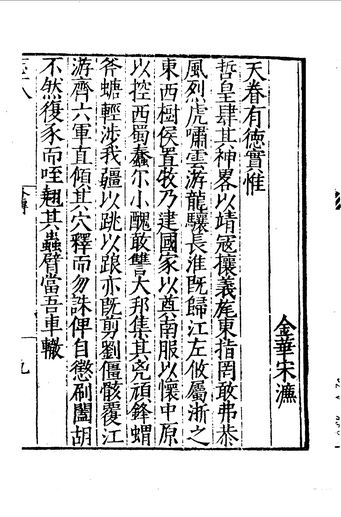 金華宋濂
天眷有德實惟
哲皇肆其神畧以靖寇攘義旄東指罔敢弗恭
風烈虎嘯雲游龍驤長淮既歸江左攸屬浙之
東西樹侯置牧乃建國家以奠南服以懷中原
以控西蜀蠢尔小醜敢讐大邦集其兇頑鋒蝟
斧螗輕涉我疆以跳以踉亦既剪劉僵骸覆江
游齊六軍直傾其穴釋而勿誅俾自懲刷闔胡
不然復豕而咥翹其蟲臂當吾車轍